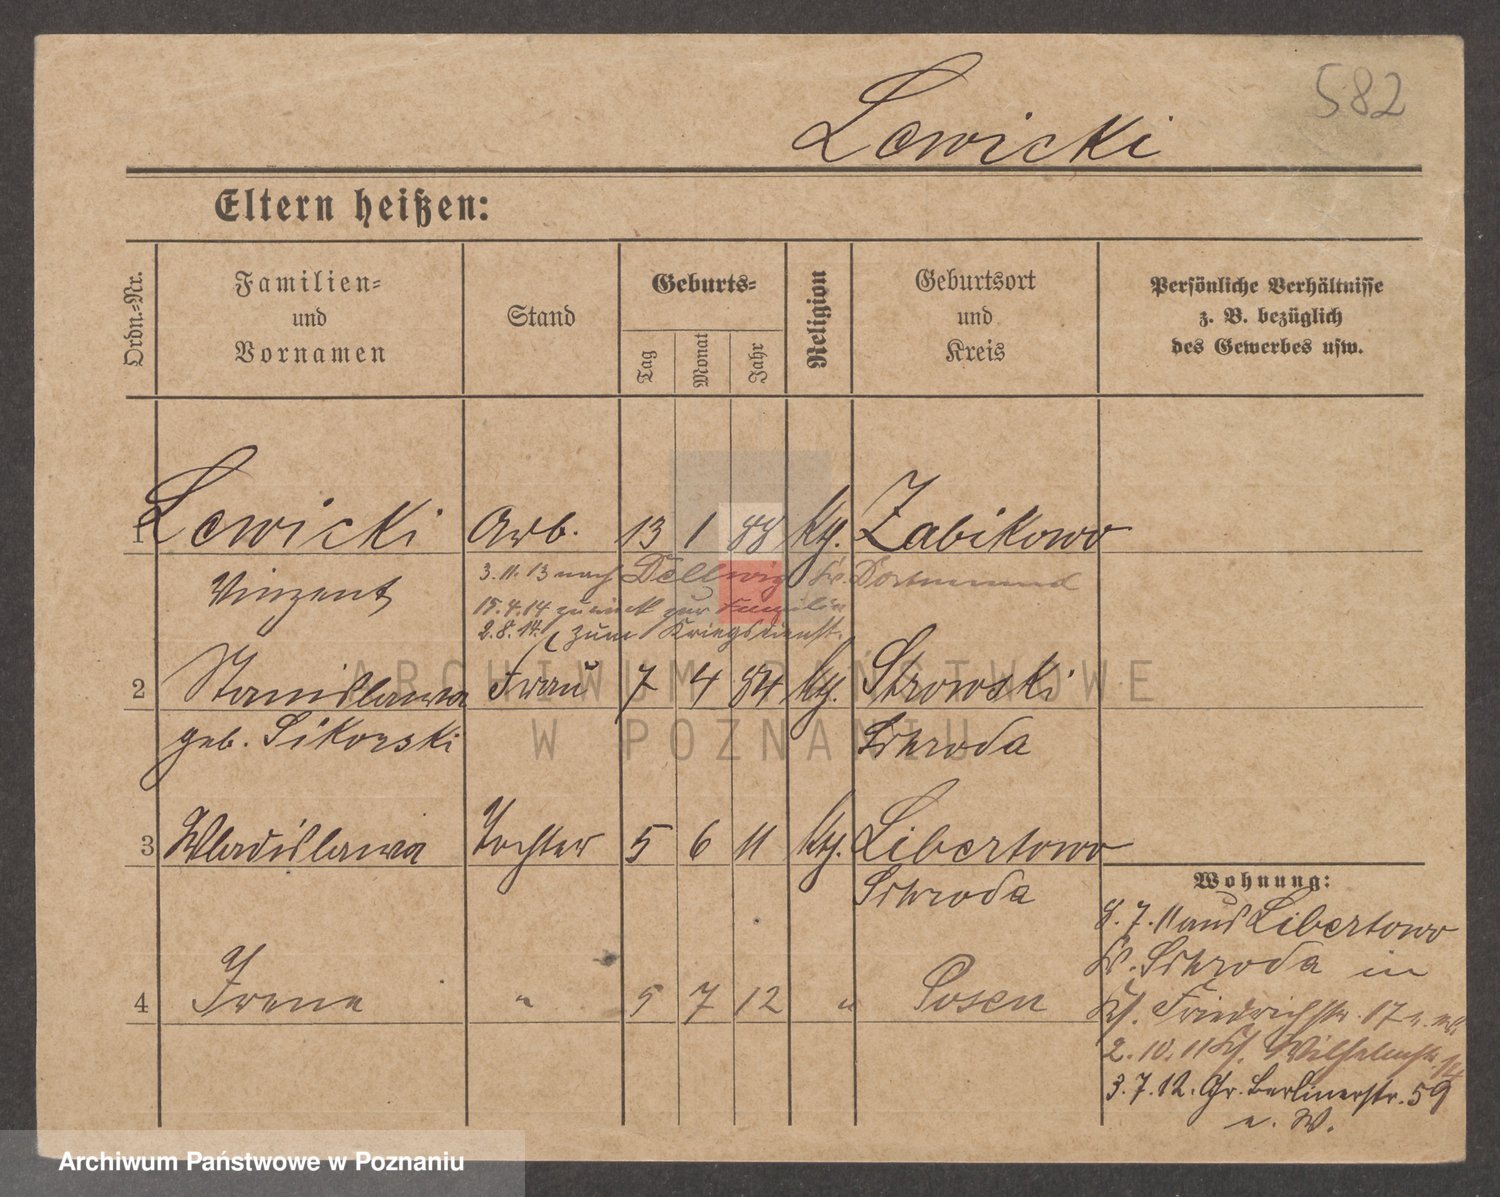 582
Lewicki
Eltern heißen:
Ordn.-Nr.
Familien-
und
Vornamen
Stand
Geburts-
Tag
Monat
Jahr
Religion
Geburtsort
und
Kreis
Persönliche Verhältnisse
z. B. bezüglich
des Gewerbes usw.
1 Lewicki Arb. 13 1 88 kth. Zabikowo
Vinzent 3.11.13 nach Dellwig Kr. Dortmund
15.4.14 zurück zur Familie
2.8.14 zum Kriegsdienst.
2 Stanislawa Frau 7 4 84 kth. Strowski
geb. Sikorski Schroda
3 Wladislawa Tochter 5 6 11 kth. Libertowo
Schroda
4 Irene " 5 7 12 " Posen
Wohnung:
8.7.11 aus Libertowo
Kr. Schroda in
Friedrichstr. 17
2.10.11 Wilhelmstr. 14
3.7.12. Gr. Berlinerstr. 59
u. W.
ARCHIWUM PAŃSTWOWE
W POZNANIU
Archiwum Państwowe w Poznaniu